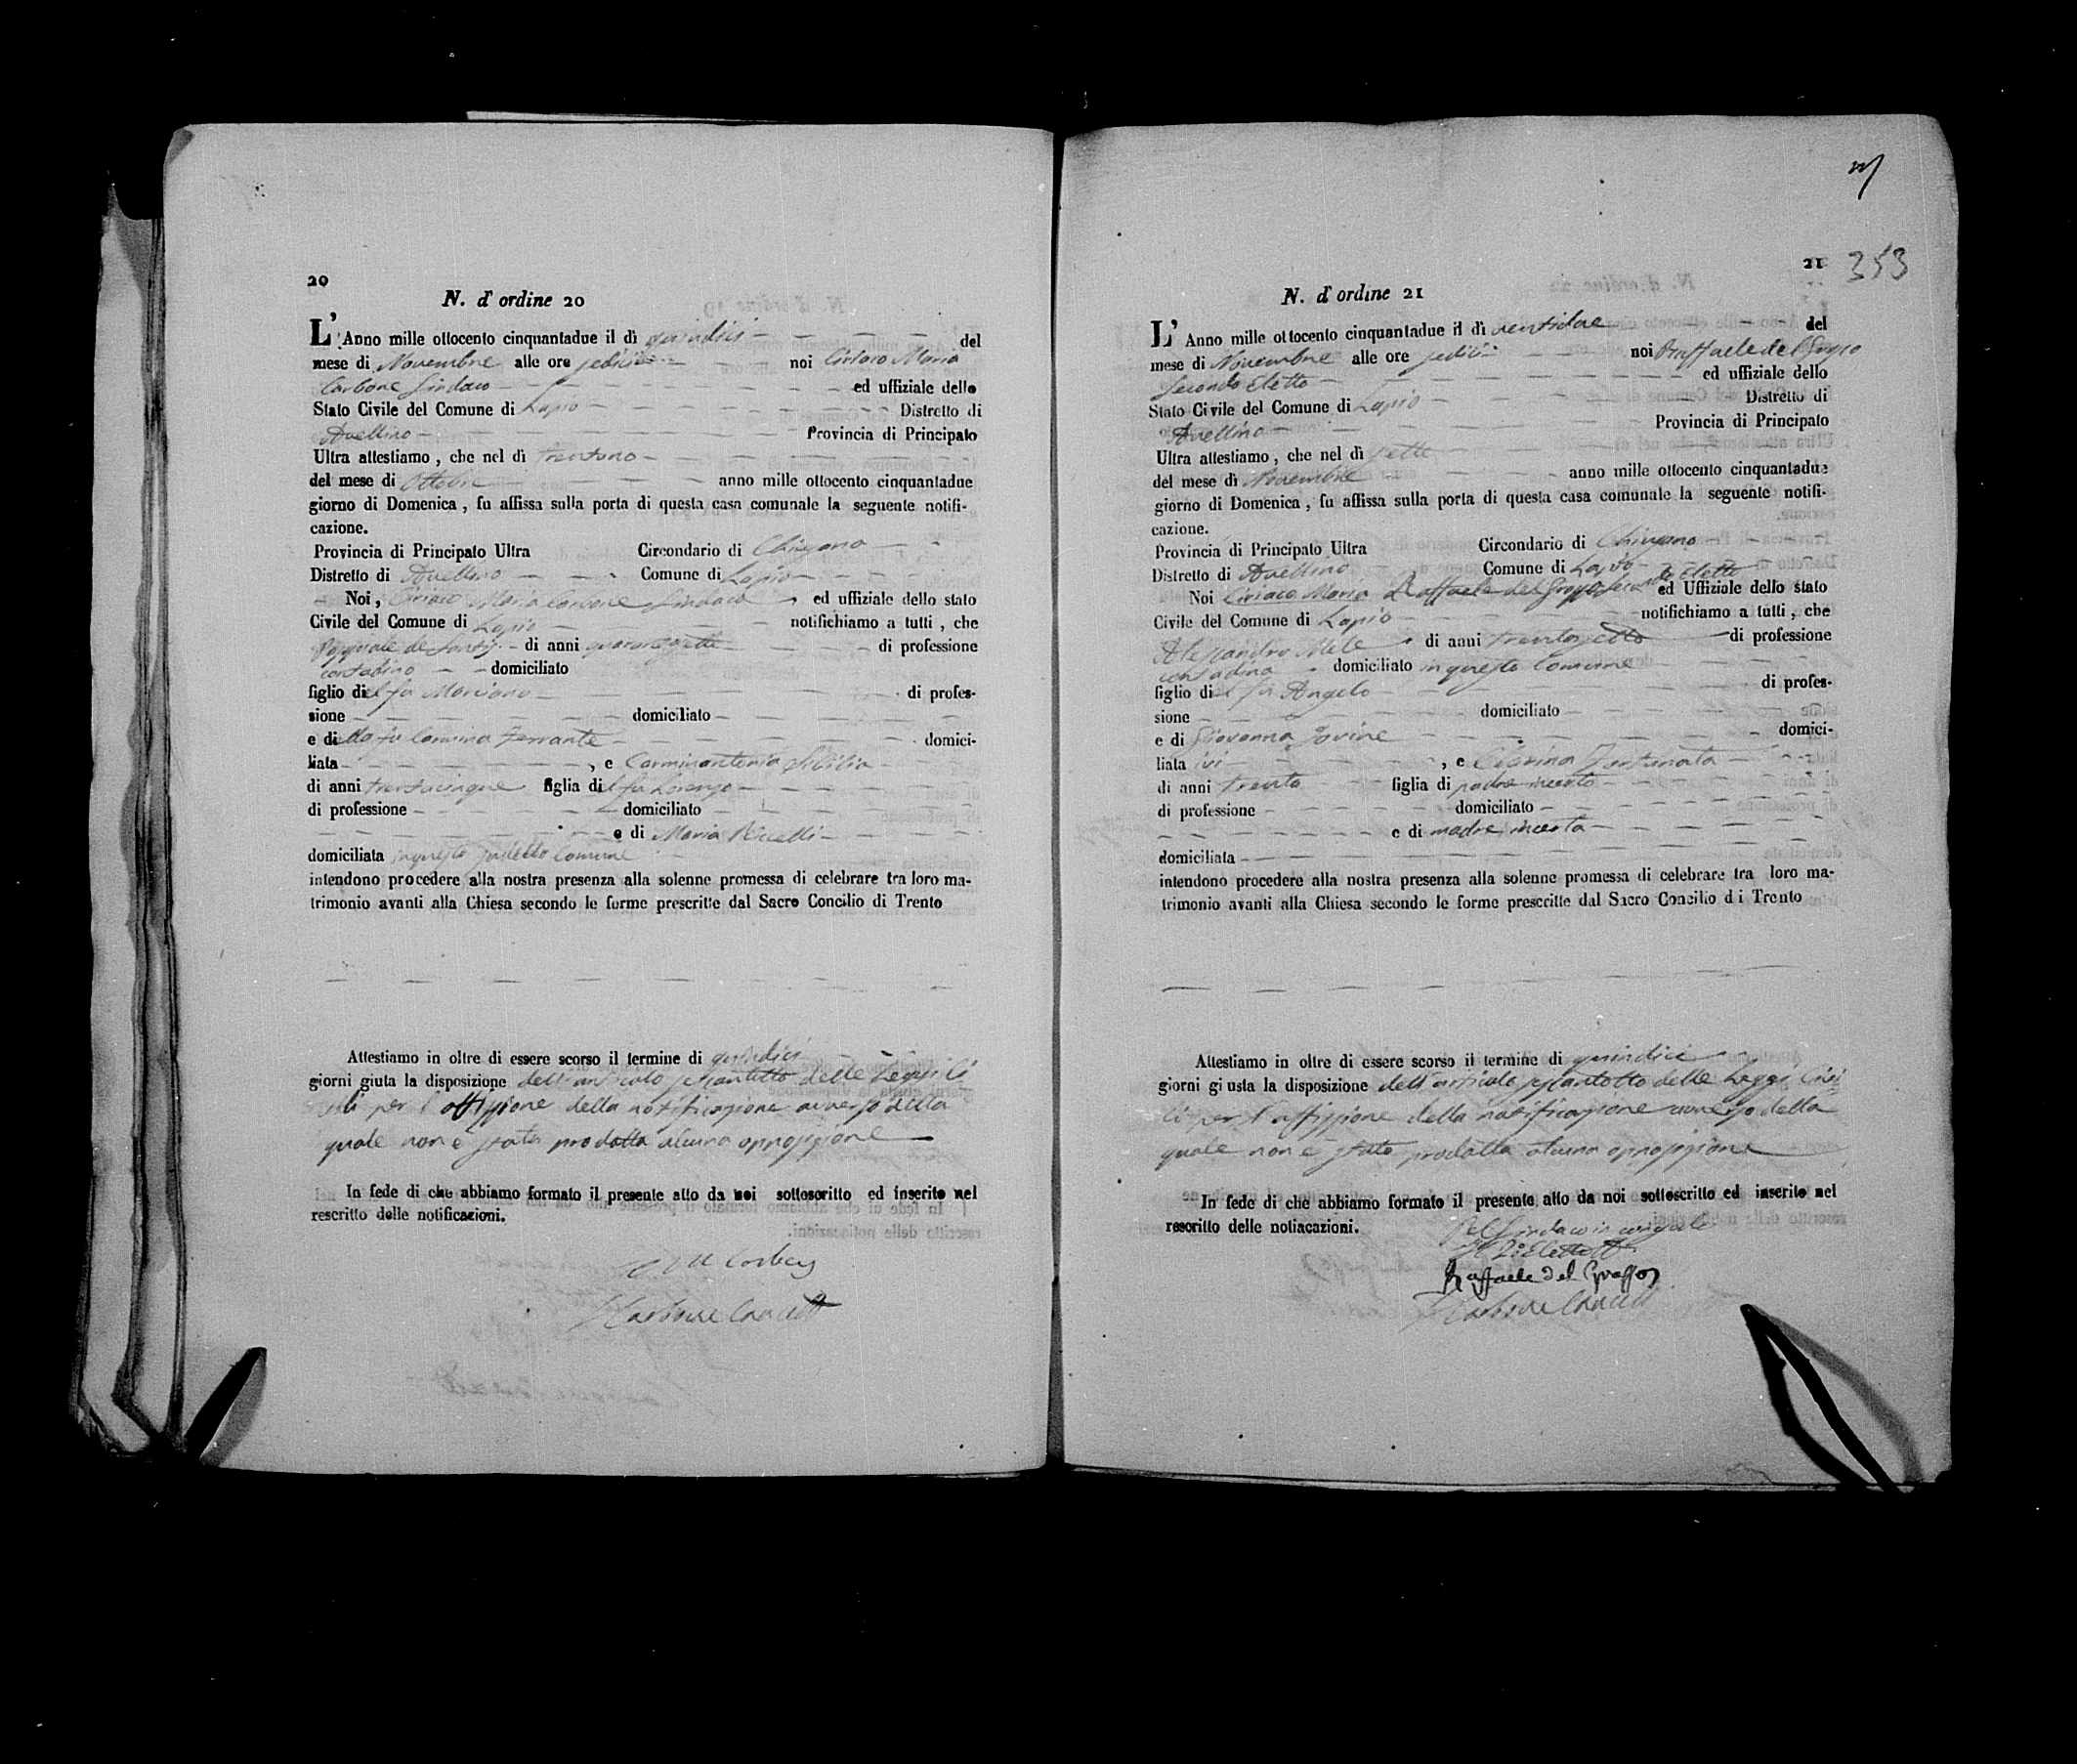 20
N. d'ordine 20
L'Anno mille ottocento cinquantadue il dì quindici del
mese di Novembre alle ore sedici noi Ciriaco Maria
Carbone Sindaco ed uffiziale dello
Stato Civile del Comune di Lapio Distretto di
Avellino Provincia di Principato
Ultra attestiamo, che nel dì trentuno
del mese di Ottobre anno mille ottocento cinquantadue
giorno di Domenica, fu affissa sulla porta di questa casa comunale la seguente notifi-
cazione.
Provincia di Principato Ultra Circondario di Chiusano
Distretto di Avellino Comune di Lapio
Noi, Ciriaco Maria Carbone Sindaco ed uffiziale dello stato
Civile del Comune di Lapio notifichiamo a tutti, che
Pasquale de Santis di anni quarantasette di professione
contadino domiciliato
figlio del fu Marciano di profes-
sione domiciliato
e di della fu Carmina Ferrante domici-
liata , e Carminantonia Sicilia
di anni trentacinque figlia del fu Lorenzo
di professione domiciliato
e di Maria
domiciliata in questo suddetto Comune
intendono procedere alla nostra presenza alla solenne promessa di celebrare tra loro ma-
trimonio avanti alla Chiesa secondo le forme prescritte dal Sacro Concilio di Trento
Attestiamo in oltre di essere scorso il termine di quindici
giorni giuta la disposizione dell'articolo sessantotto delle Leggi Ci
vili per l'affissione della notificazione avverso della
quale non è stata prodotta alcuna opposizione
In fede di che abbiamo formato il presente atto da noi sottoscritto ed inserito nel
rescritto delle notificazioni.
Carbone
21
353
N. d'ordine 21
L'Anno mille ottocento cinquantadue il dì ventidue del
mese di Novembre alle ore sedici noi Raffaele del Grosso
Secondo Eletto ed uffiziale dello
Stato Civile del Comune di Lapio Distretto di
Avellino Provincia di Principato
Ultra attestiamo, che nel dì sette
del mese di Novembre anno mille ottocento cinquantadue
giorno di Domenica, fu affissa sulla porta di questa casa comunale la seguente notifi-
cazione.
Provincia di Principato Ultra Circondario di Chiusano
Distretto di Avellino Comune di Lapio
Noi Ciriaco Maria Raffaele del Grosso Secondo Eletto ed Uffiziale dello stato
Civile del Comune di Lapio notifichiamo a tutti, che
Alessandro Mele di anni trentasette di professione
contadino domiciliato in questo Comune
figlio del fu Angelo di profes-
sione domiciliato
e di Giovanna Iovine domici-
liata ivi , e Fortunata
di anni trenta figlia di padre incerto
di professione domiciliato
e di madre incerta
domiciliata
intendono procedere alla nostra presenza alla solenne promessa di celebrare tra loro ma-
trimonio avanti alla Chiesa secondo le forme prescritte dal Sacro Concilio di Trento
Attestiamo in oltre di essere scorso il termine di quindici
giorni giusta la disposizione dell'articolo sessantotto delle Leggi Civi
li per l'affissione della notificazione avverso della
quale non è stata prodotta alcuna opposizione
In fede di che abbiamo formato il presente atto da noi sottoscritto ed inserito nel
resoritto delle notiacazioni.
Pel Sindaco in congedo
Il 2º Eletto
Raffaele del Grosso
Carbone